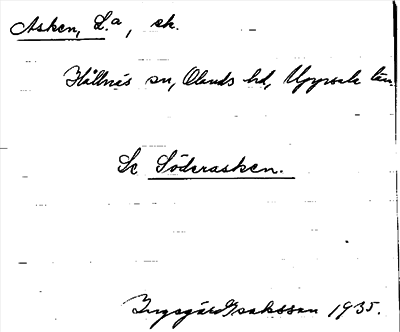 Asken, L:a, sk.
Hållnäs sn, Olands hd, Uppsala län
Se Söderasken.
Ingegärd Isaksson 1935.